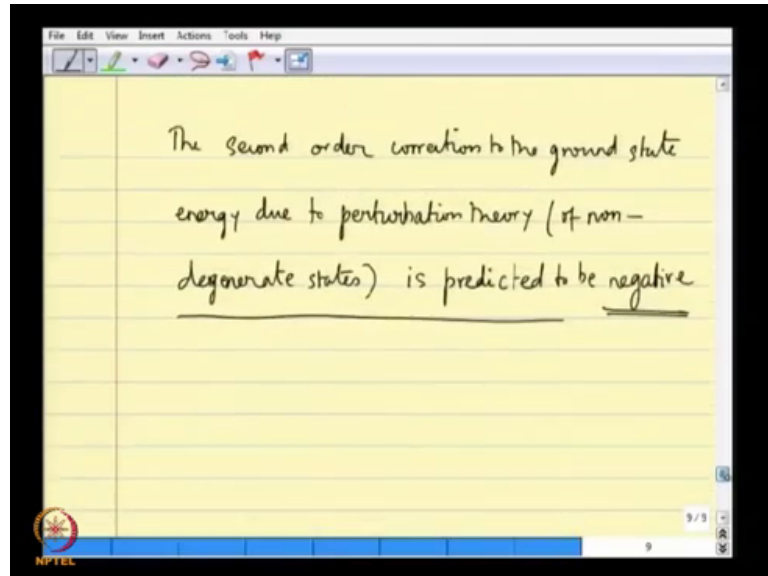 File Edit View Insert Actions Tools Help
The second order correction to the ground state
energy due to perturbation theory (of non-
degenerate states) is predicted to be negative
9/9
9
NPTEL